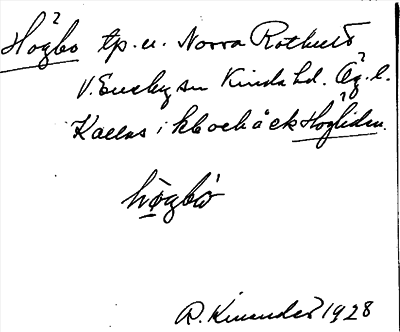 Högbo tp. u. Norra Rothult
V. Eneby sn Kinda hd. Ög. l.
Kallas i kb och äck Högliden.
högbo
R. Kinander 1928